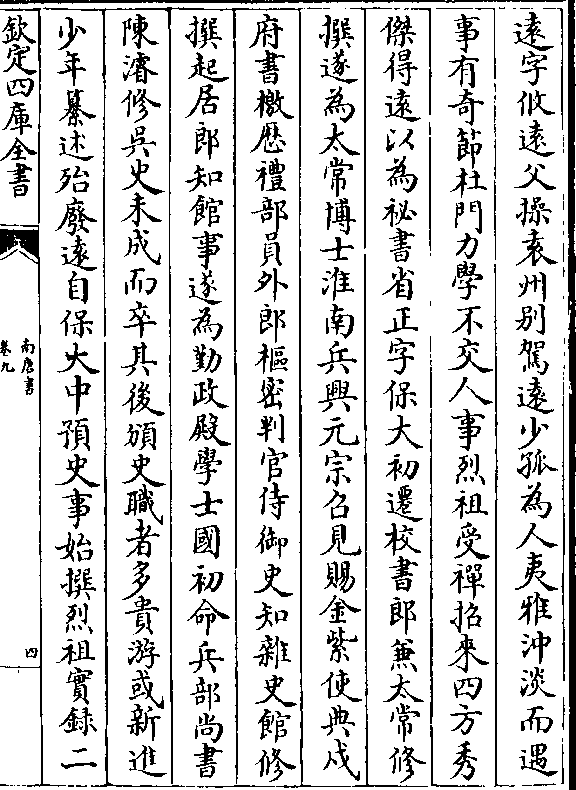 遠字攸遠父操袁州别駕遠少孤為人夷雅沖淡而遇
事有奇節杜門力學不交人事烈祖受禪招來四方秀
傑得遠以為祕書省正字保大初遷校書郎兼太常修
撰遂為太常博士淮南兵興元宗召見賜金紫使典戍
府書檄歴禮部員外郎樞密判官侍御史知雜史館修
撰起居郎知館事遂為勤政殿學士國初命兵部尚書
陳濬修吳史未成而卒其後頒史職者多貴游或新進
少年纂述殆廢遠自保大中預史事始撰烈祖實録二
欽定四庫全書
南唐書
卷九
四